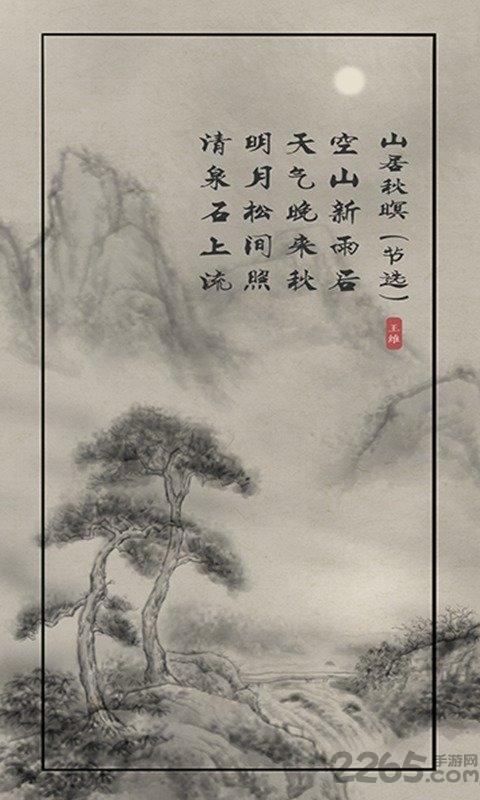 山居秋暝（节选）
王维
空山新雨后
天气晚来秋
明月松间照
清泉石上流
2265.com
手游网